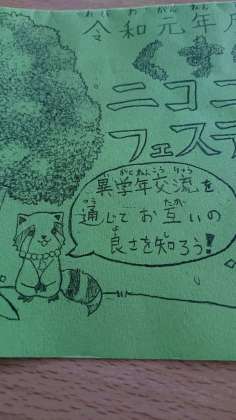 れいわがんねん
令和元年度
ニコニ
フェステ
異学年交流を
通じてお互いの
良さを知ろう!